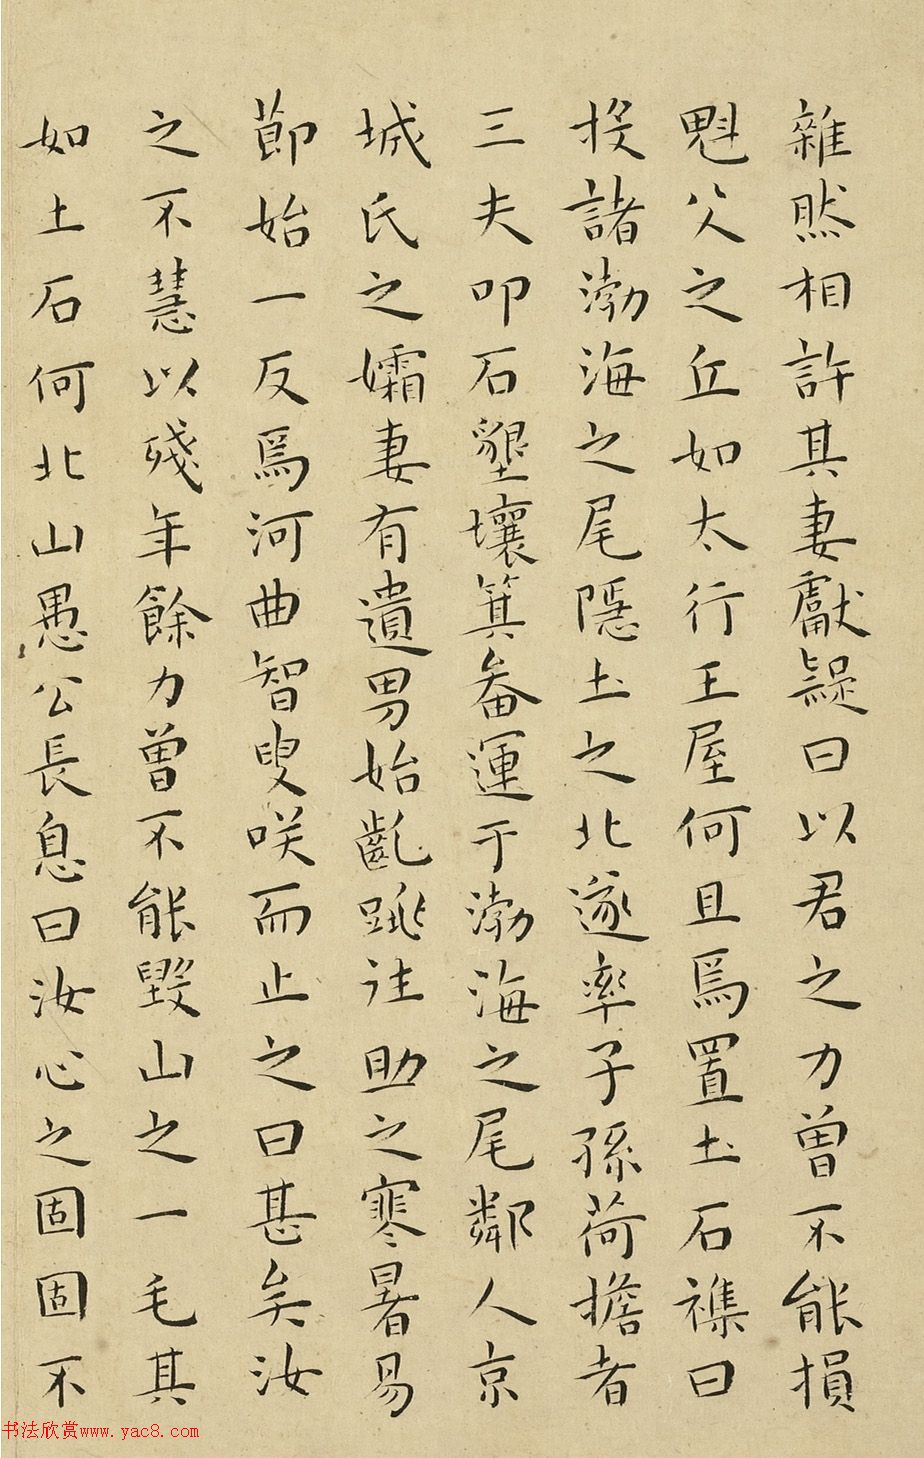 雜然相許其妻獻疑曰以君之力曾不能損
魁父之丘如太行王屋何且焉置土石襍曰
投諸渤海之尾隱土之北遂率子孫荷擔者
三夫叩石墾壤箕畚運于渤海之尾鄰人京
城氏之孀妻有遺男始齓跳往助之寒暑易
節始一反焉河曲智叟咲而止之曰甚矣汝
之不慧以殘年餘力曾不能毀山之一毛其
如土石何北山愚公長息曰汝心之固固不
书法欣赏www.yac8.com